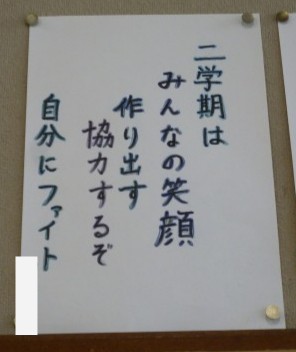 二学期は
みんなの笑顔
作り出す
協力するぞ
自分にファイト